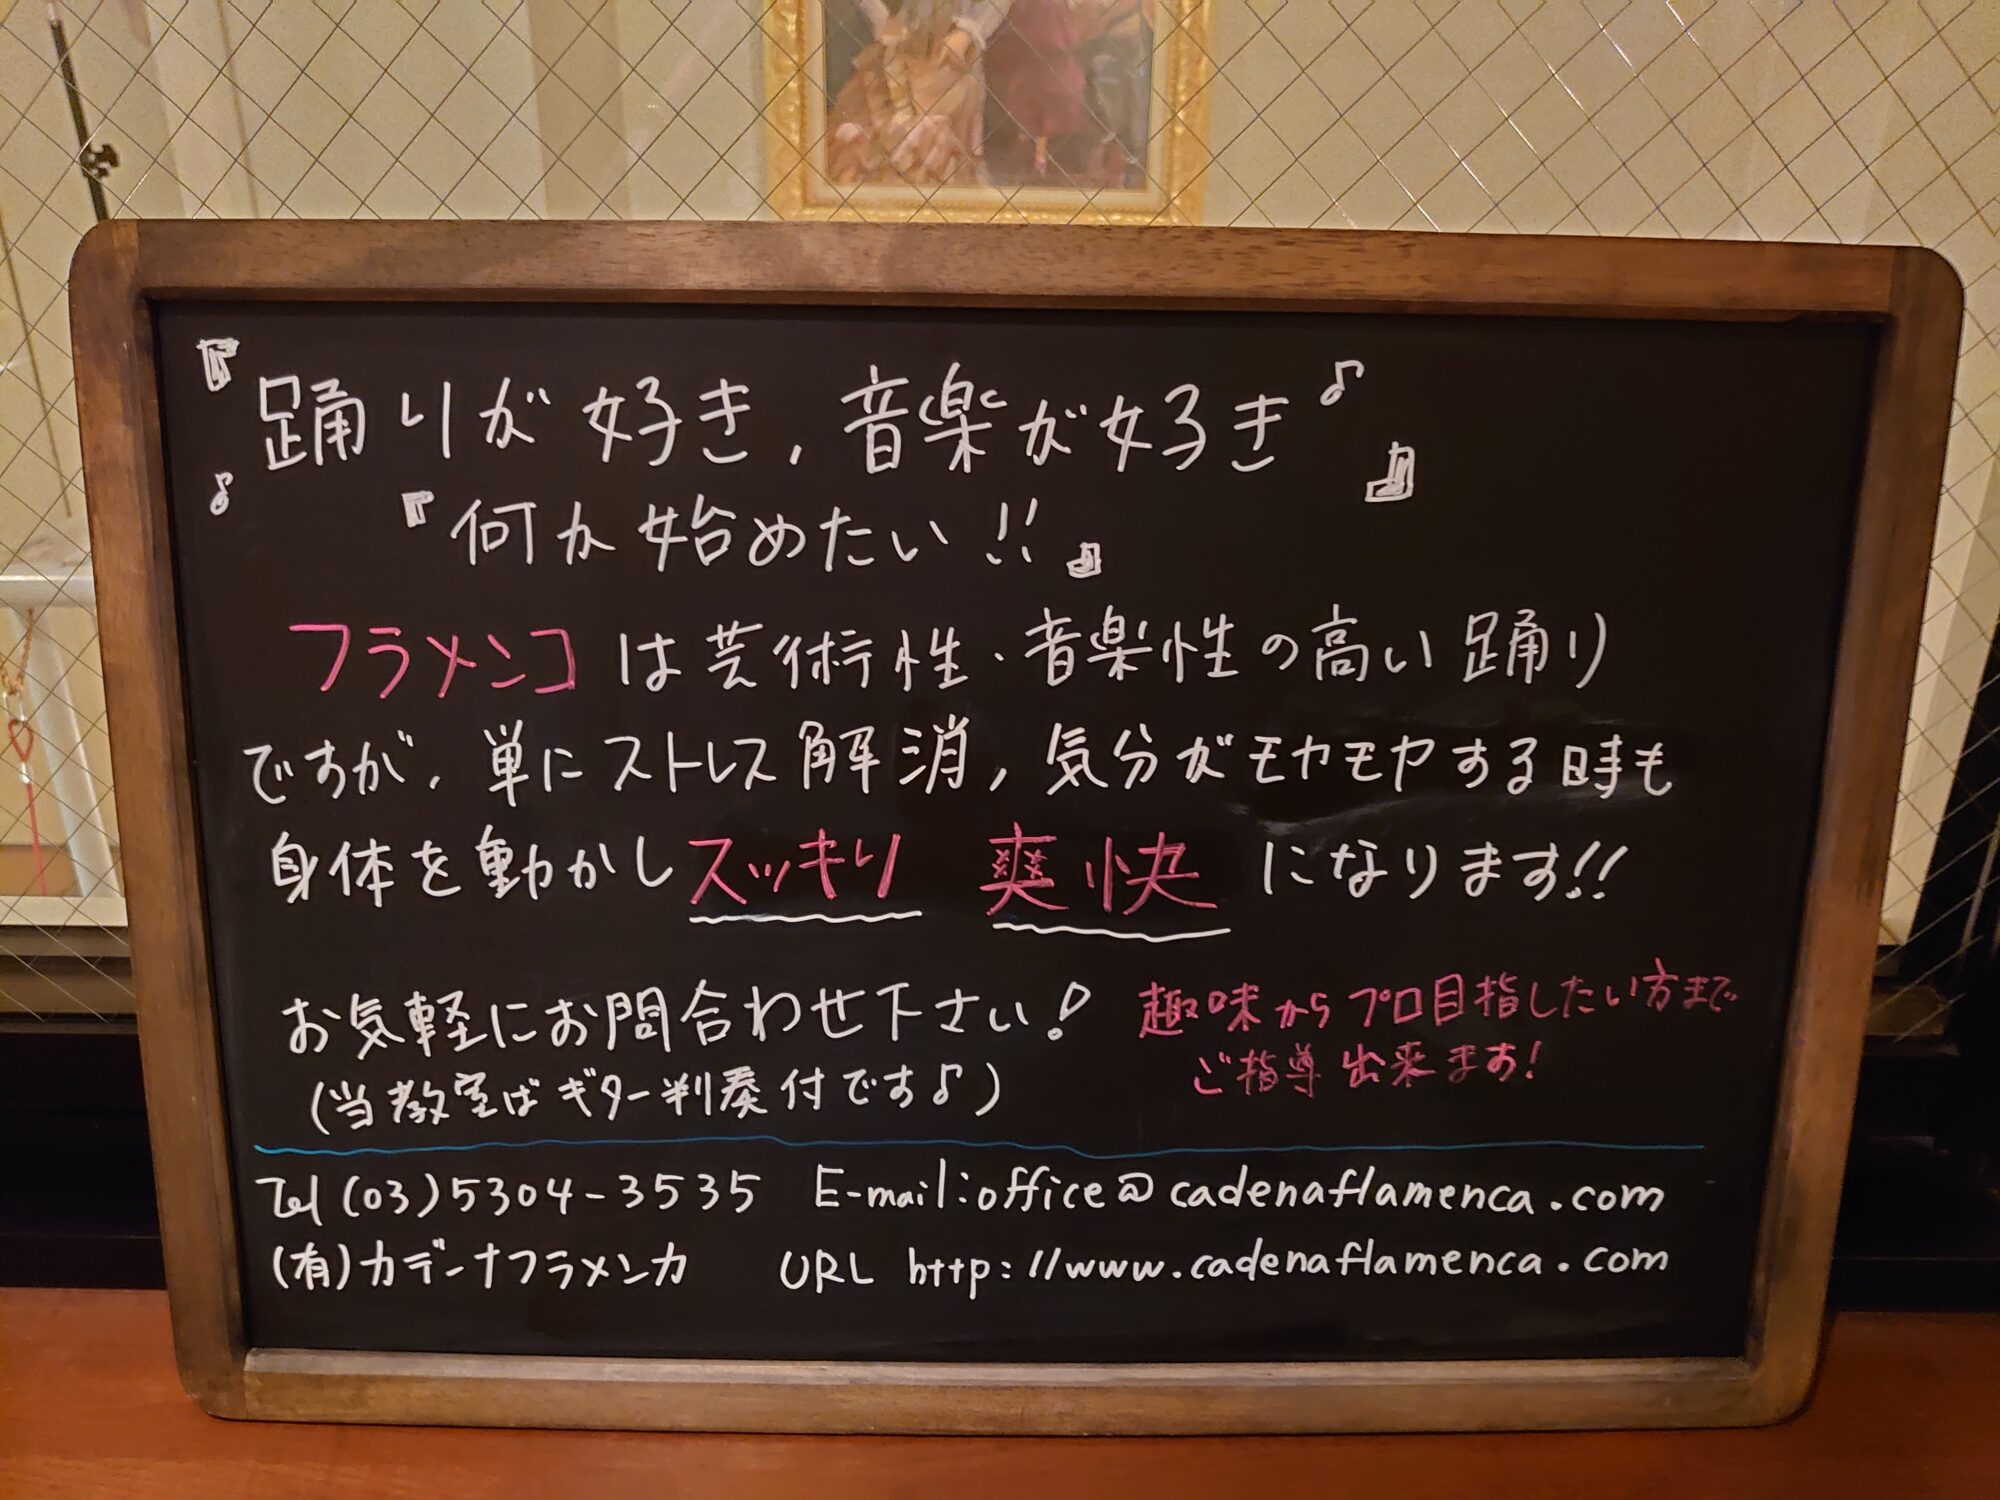 『踊りが好き，音楽が好き♪』
♪『何か始めたい!!』
フラメンコは芸術性・音楽性の高い踊り
ですが，単にストレス解消，気分がモヤモヤする時も
身体を動かしスッキリ 爽快 になります!!
お気軽にお問合わせ下さい!
(当教室はギター判奏付です♪)
趣味からプロ目指したい方まで
ご指導出来ます!
Tel (03)5304-3535 E-mail:office@cadenaflamenca.com
(有)カデーナフラメンカ URL http://www.cadenaflamenca.com